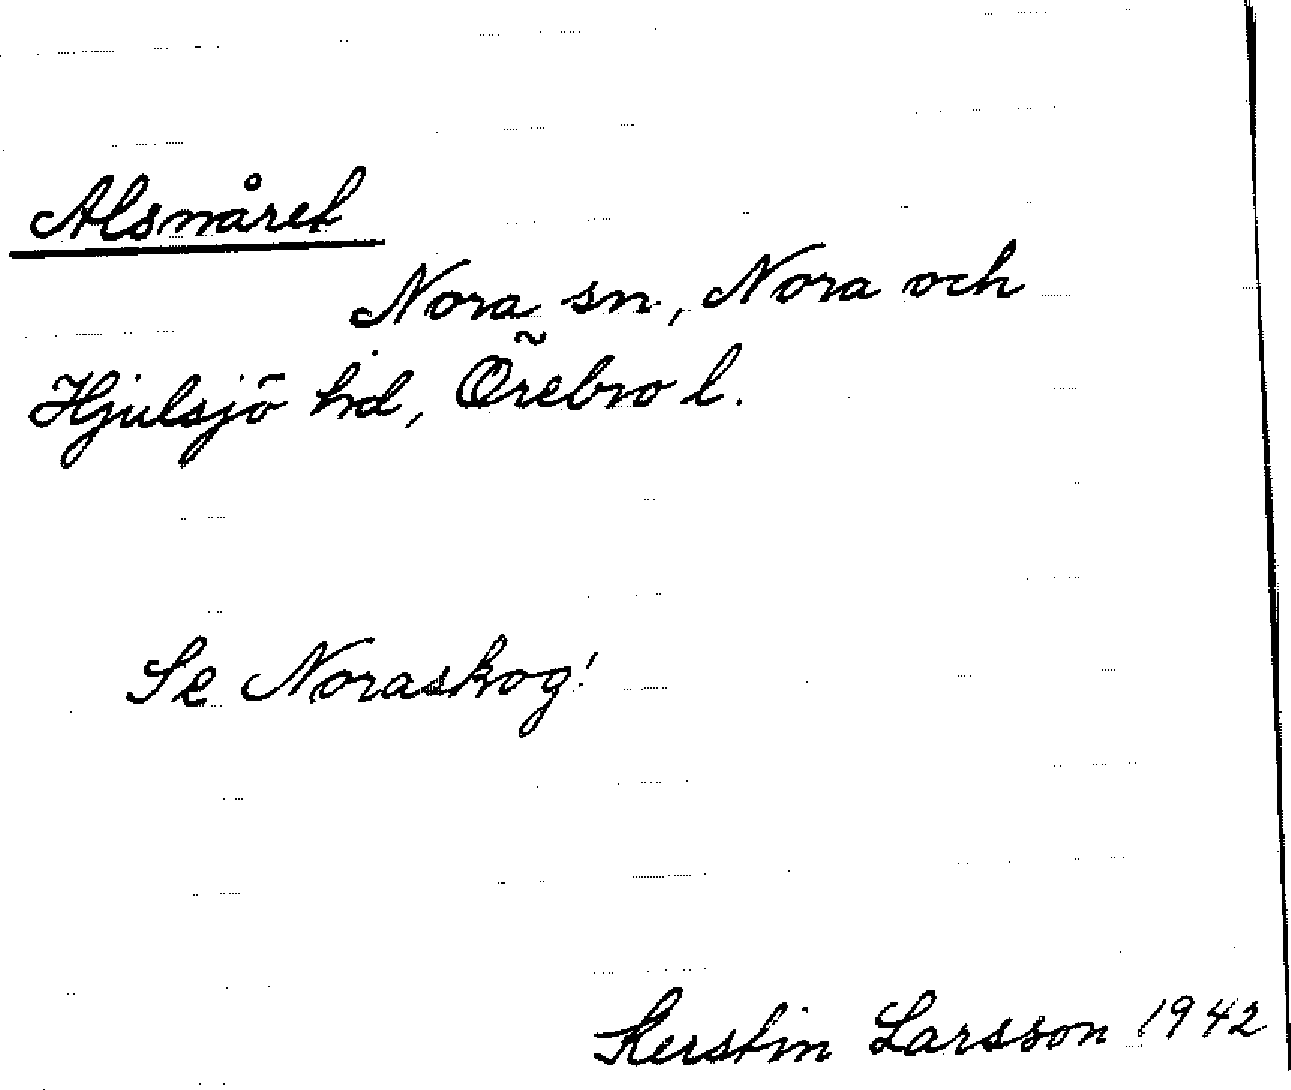 Alsnåret
Nora sn, Nora och
Hjulsjö hd, Örebro l.
Se Noraskog!
Kerstin Larsson 1942